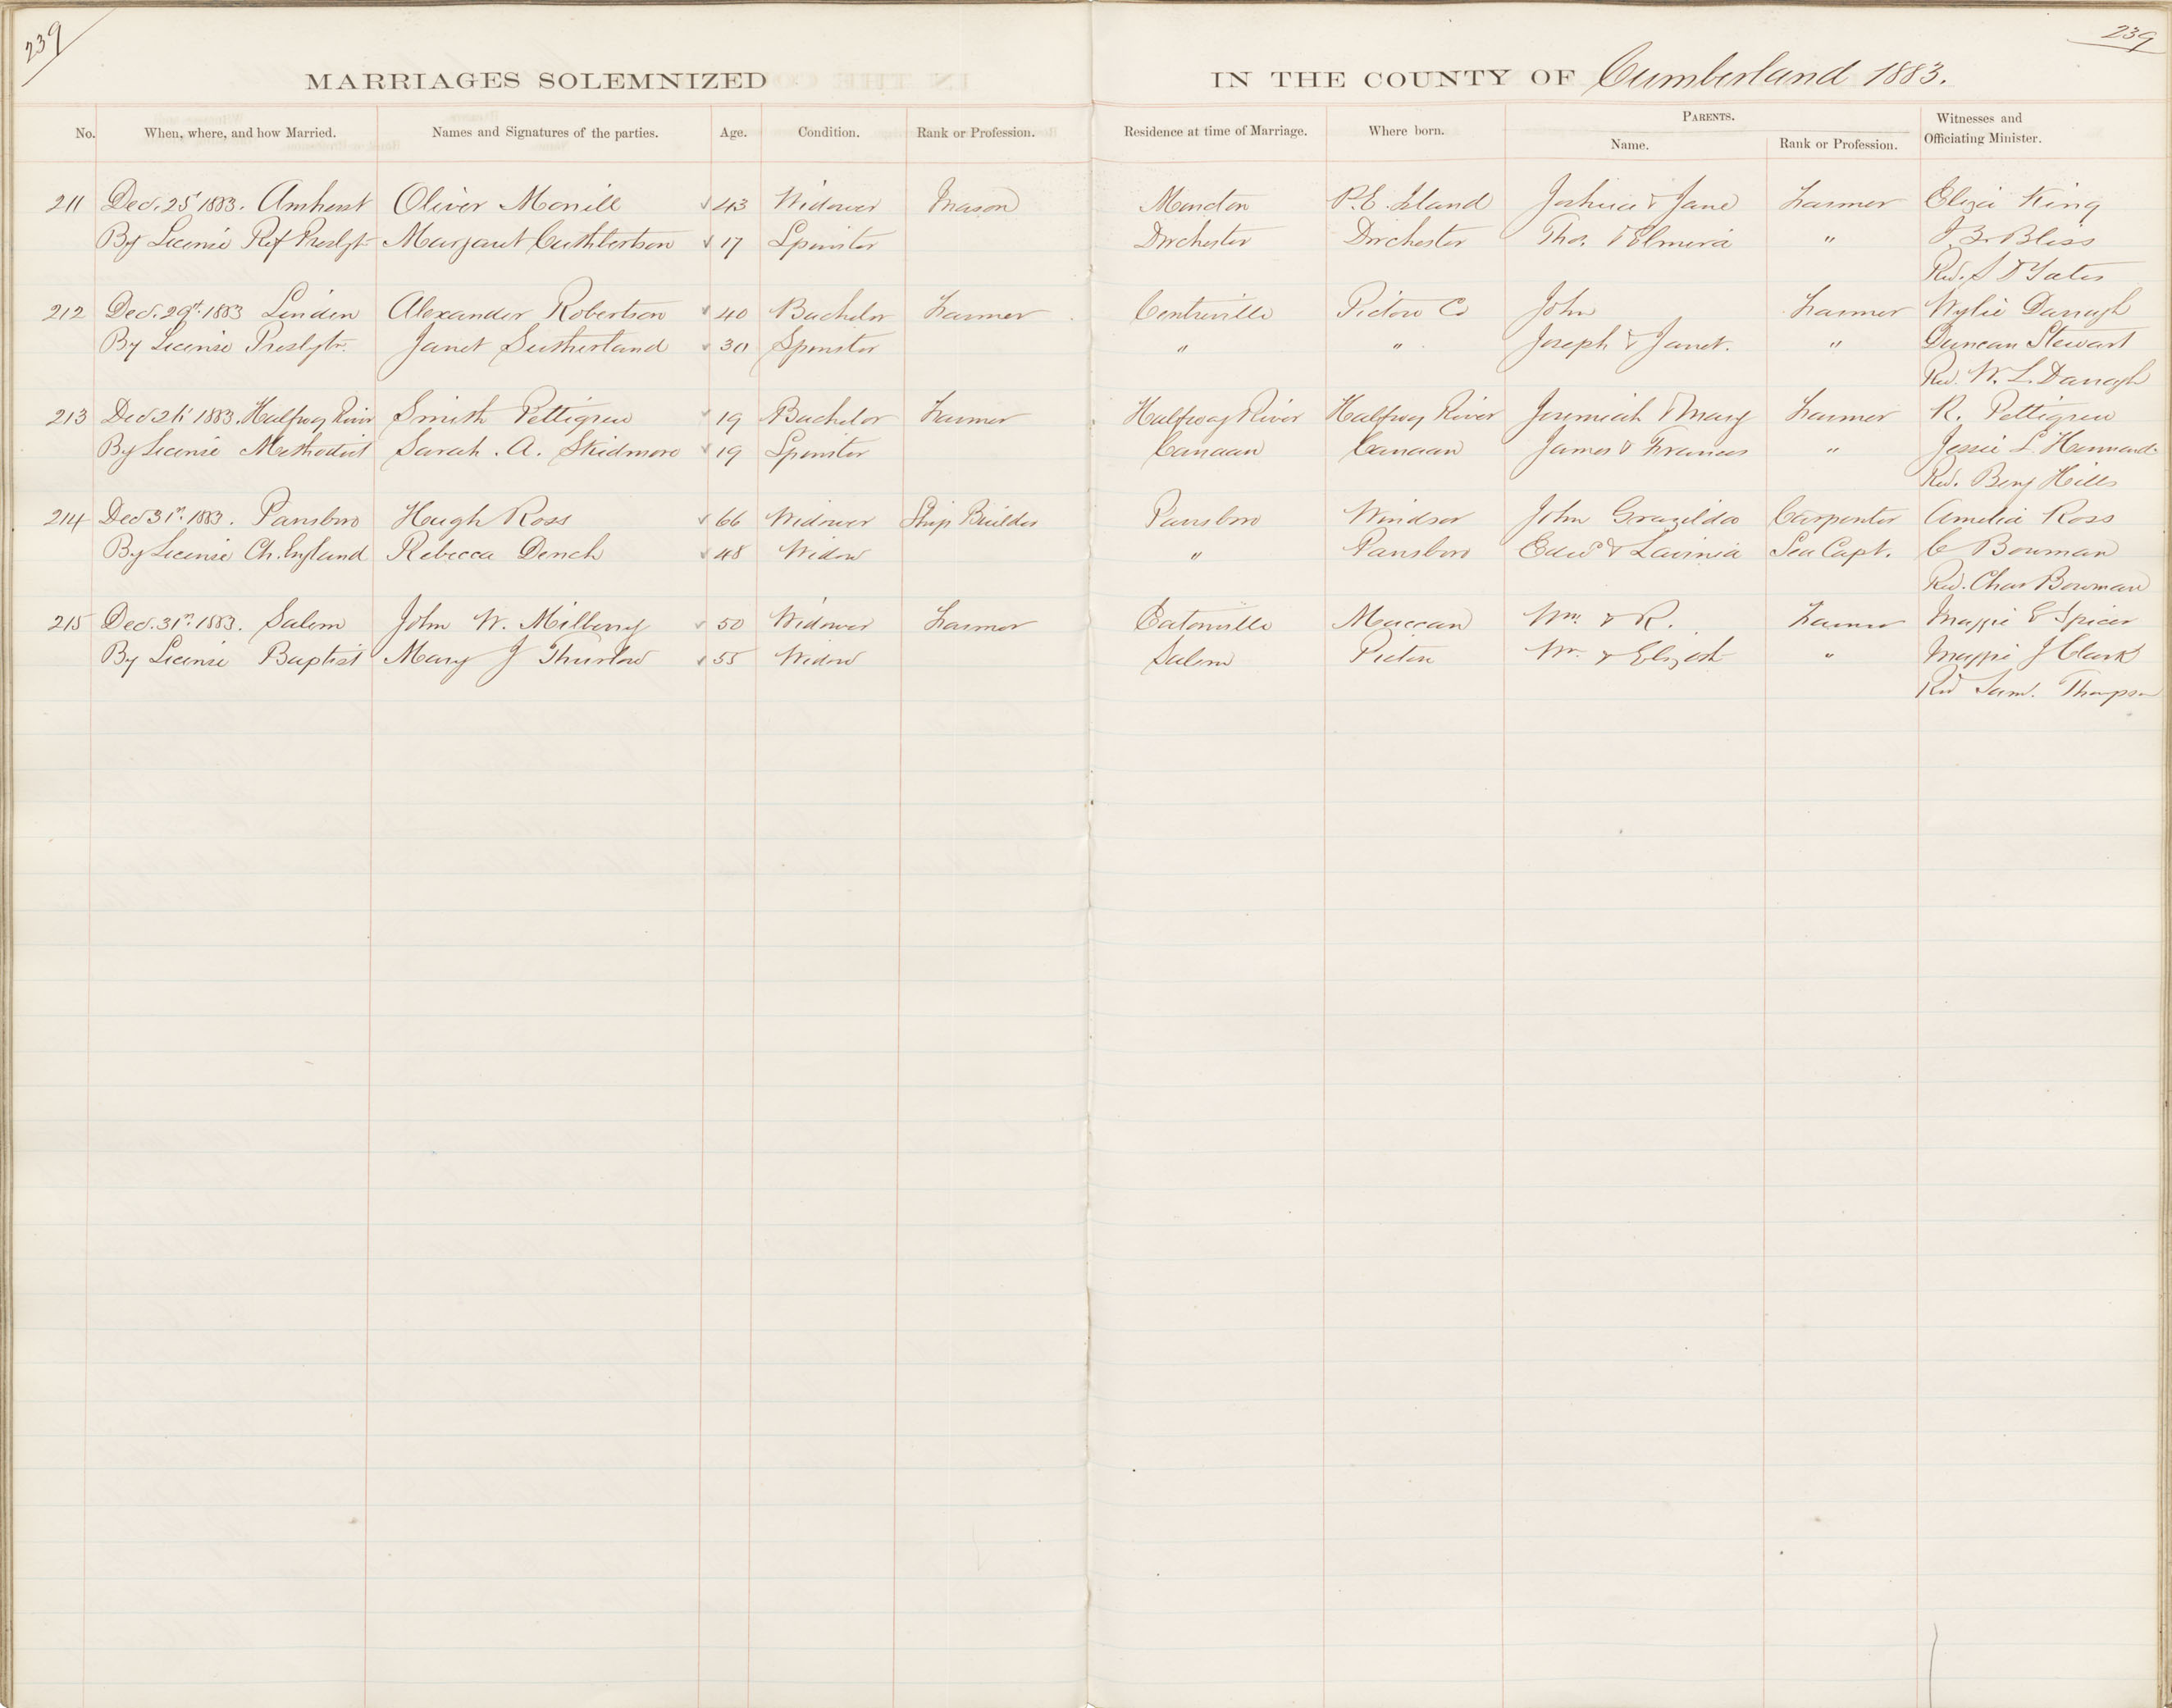 239
239
MARRIAGES SOLEMNIZED IN THE COUNTY OF Cumberland 1883.
No. When, where, and how Married. Names and Signatures of the parties. Age. Condition. Rank or Profession. Residence at time of Marriage. Where born. PARENTS. Name. Rank or Profession. Witnesses and Officiating Minister.
211 Dec. 25 1883. Amherst Oliver √ 43 Widower Mason Moncton P.E. Island Joshua & Jane Farmer Eliza King
By License Ref Presbyt Margaret Cuthbertson √ 17 Spinster Dorchester Dorchester Thos. & Elmira " Bliss
Rev. S Yates
212 Dec. 29th 1883 Linden Alexander Robertson √ 40 Bachelor Farmer Centreville Pictou Co John Farmer Wylie Darragh
By License Presbytr. Janet Sutherland √ 30 Spinster " " Joseph & Janet. " Duncan Stewart
Rev. W. L. Darragh
213 Dec 1883. Halfway River Smith Pettigrew √ 19 Bachelor Farmer Halfway River Halfway River Jeremiah & Mary Farmer R. Pettigrew
By License Methodist Sarah. A. Skidmore √ 19 Spinster Canaan Canaan James & Frances " Jessie L.
Rev. Benj Hills
214 Dec 31st 1883. Parrsboro Hugh Ross √ 66 Widower Ship Builder Parrsboro Windsor John Carpenter Amelia Ross
By License Ch. England Rebecca Dench √ 48 Widow " Parrsboro Edwd & Lavinia Sea Capt. C Bowman
Rev. Chas Bowman
215 Dec. 31st 1883. Salem John W. Milberry √ 50 Widower Farmer Eatonville Maccan Wm. & R. Farmer Maggie E Spicer
By License Baptist Mary J Thurlow √ 55 Widow Salem Pictou Wm. & Elizbth " Maggie J Clark
Rev Saml. Thompson